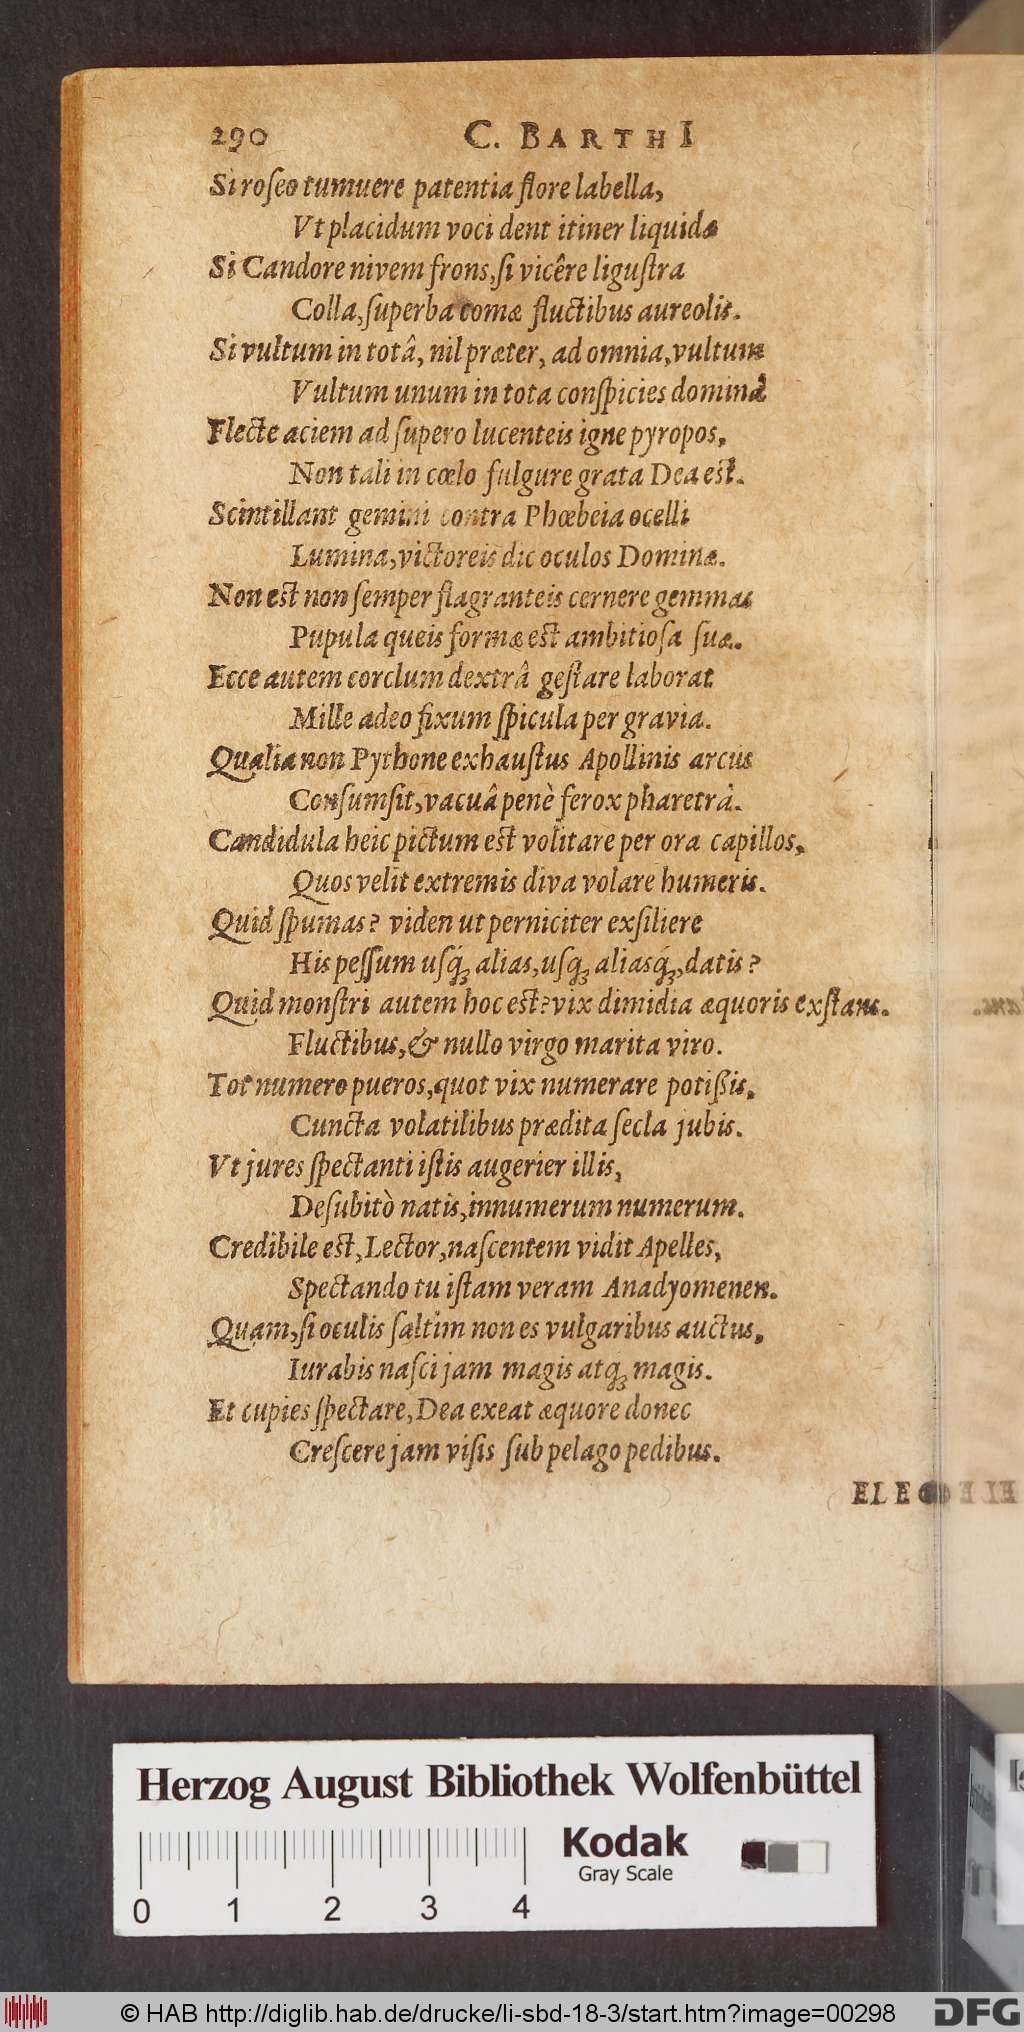 290 C. BARTHI
Si roſeo tumuere patentia flore labella,
Vt placidum voci dent itiner liquidæ
Si Candore nivem frons, ſi vicêre liguſtra
Colla, ſuperba comæ fluctibus aureolis.
Si vultum in totâ, nil præter, ad omnia, vultum
Vultum unum in tota conſpicies dominâ
Flecte aciem ad ſupero lucenteis igne pyropos,
Non tali in cœlo fulgure grata Dea eſt.
Scintillant gemini contra Phœbeia ocelli
Lumina, victoreis dic oculos Dominæ.
Non eſt non ſemper flagranteis cernere gemmas
Pupula queis formæ eſt ambitioſa ſuæ.
Ecce autem corclum dextrâ geſtare laborat
Mille adeo fixum ſpicula per gravia.
Qualia non Pythone exhauſtus Apollinis arcus
Conſumſit, vacuâ penè ferox pharetrâ.
Candidula heic pictum eſt volitare per ora capillos,
Quos velit extremis diva volare humeris.
Quid ſpumas? viden ut perniciter exſiliere
His peſſum uſq́ꝫ alias, uſqꝫ aliasq́ꝫ, datis?
Quid monſtri autem hoc eſt? vix dimidia æquoris exſtans.
Fluctibus, & nullo virgo marita viro.
Tot numero pueros, quot vix numerare potißis,
Cuncta volatilibus prædita ſecla jubis.
Vt jures ſpectanti iſtis augerier illis,
De ſubitò natis, innumerum numerum.
Credibile eſt, Lector, naſcentem vidit Apelles,
Spectando tu iſtam veram Anadyomenen.
Quam, ſi oculis ſaltim non es vulgaribus auctus,
Iurabis naſci jam magis atqꝫ magis.
Et cupies ſpectare, Dea exeat æquore donec
Creſcere jam viſis ſub pelago pedibus.
Herzog August Bibliothek Wolfenbüttel
Kodak
Gray Scale
0 1 2 3 4
© HAB http://diglib.hab.de/drucke/li-sbd-18-3/start.htm?image=00298
DFG